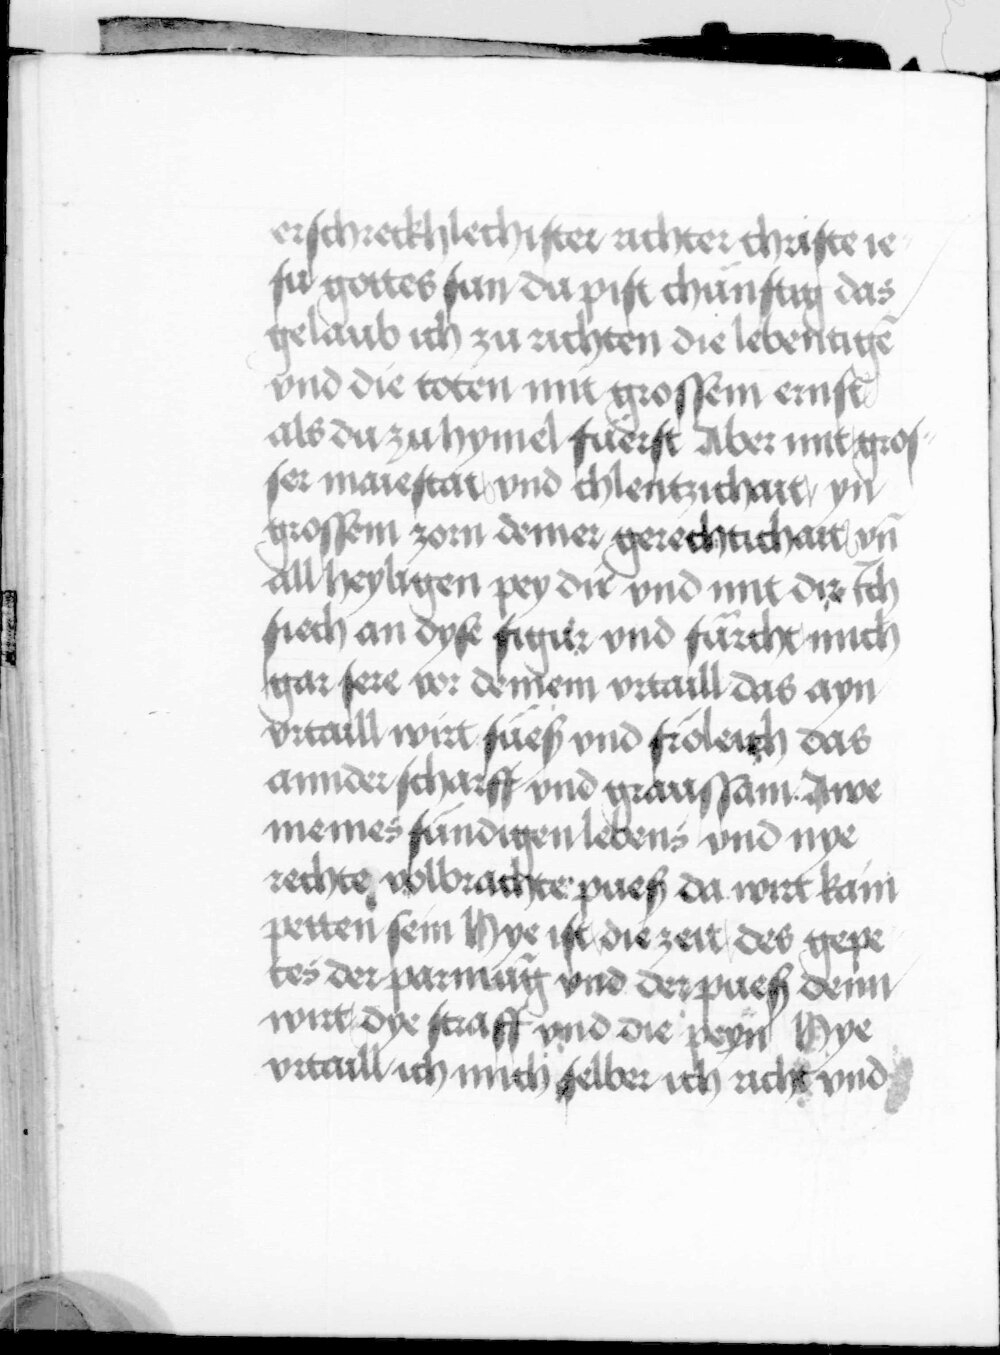 erschreckhlechister richter christe ie-
su gottes sun du pist chünftig das
gelaub ich zu richten die lebentigē
vnd die toten mit grossem ernst
als du zu hymel füerst Aber mit gros-
ser maiestat vnd chlentzichait yn
grossem zorn deiner gerechtichait vn̄
all heyligen pey dir vnd mit dir Ich
siech an dyse figur vnd fürcht mich
gar sere vor deinem vrtaill das ayn
vrtaill wirt süeß vnd fröleich das
annder scharff vnd graussam. Awe
meines sündigen lebens vnd nye
rechte volbrachte pueß da wirt kain
petten sein Hye ist die zeit des gepe
tes der parmūg vnd der pueß denn
wirt dye straff vnd die peyn Hye
vrtaill ich mich selber ich richt vnd